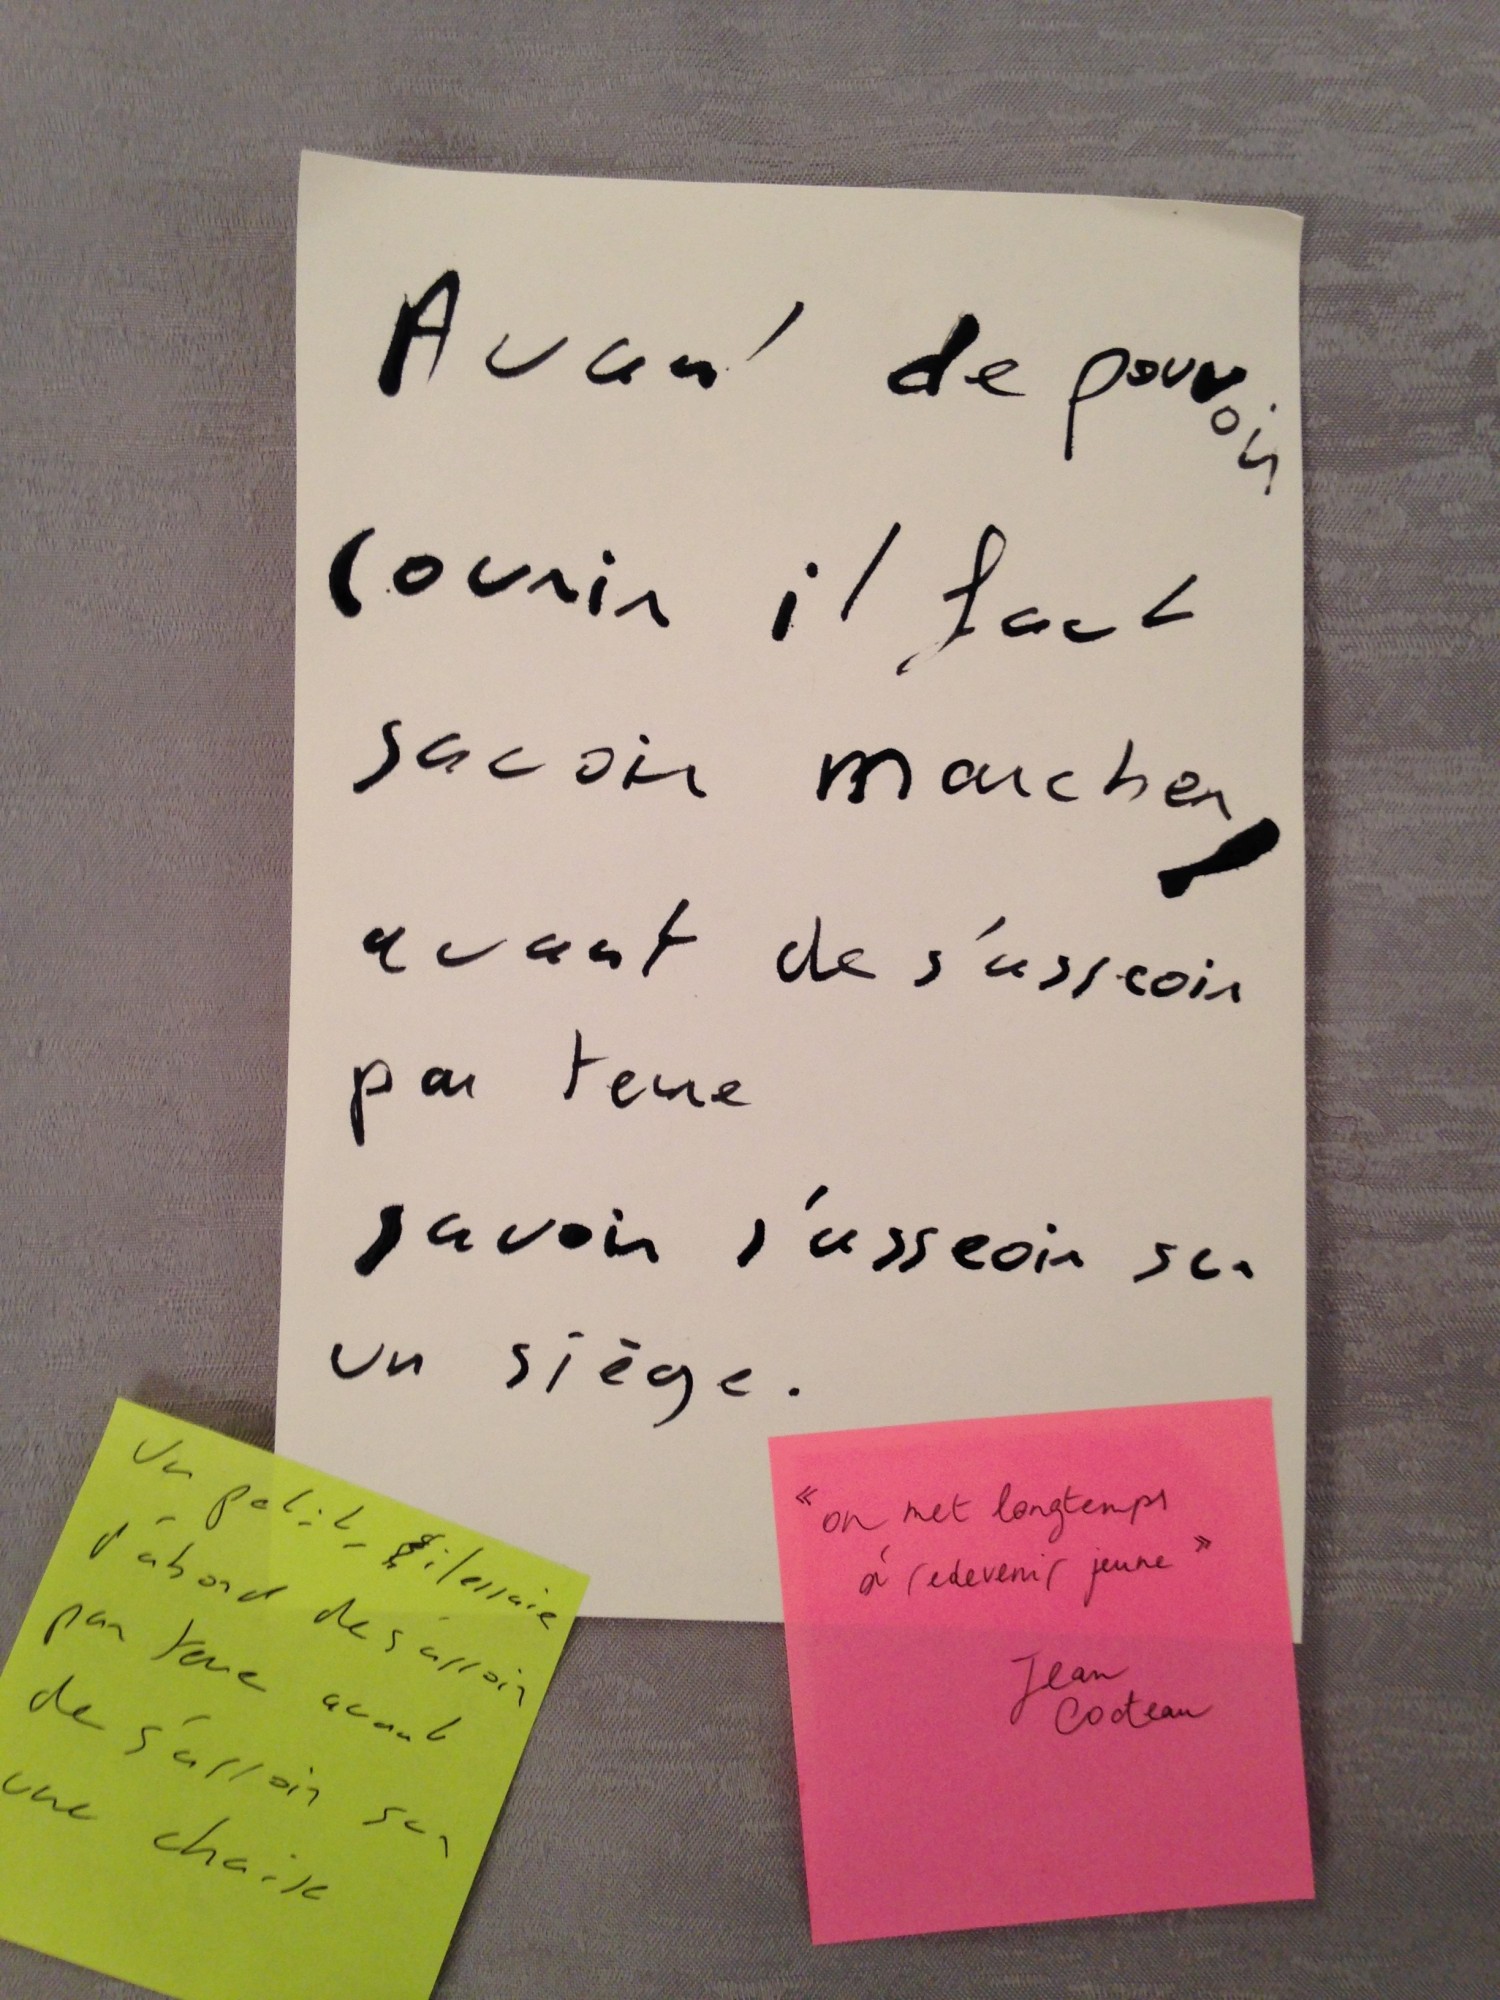 Avant de pouvoir
courir il faut
savoir marcher,
avant de s'asseoir
par terre
savoir s'asseoir sur
un siège.
Un petit, il essaie
d'abord de s'assoir
par terre avant
de s'assoir sur
une chaise
« on met longtemps
à redevenir jeune »
Jean
Cocteau